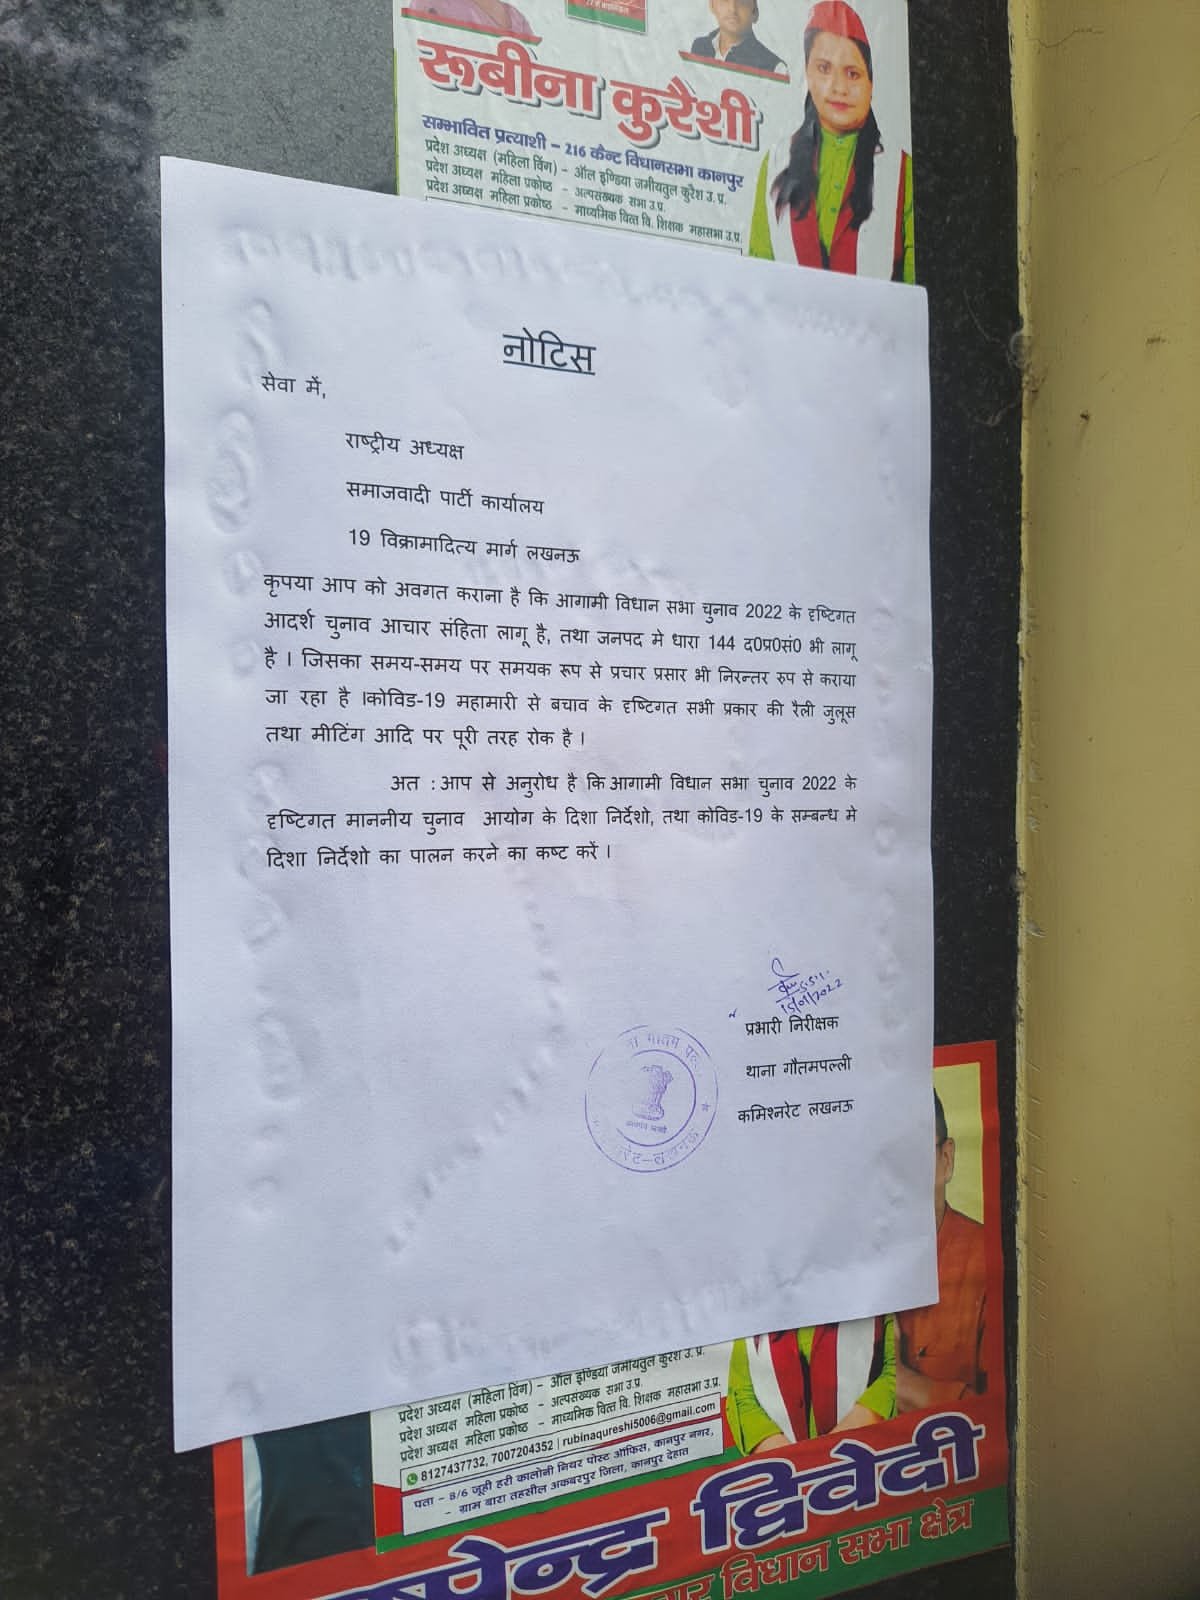 रूबीना कुरैशी
सम्भावित प्रत्याशी – 216 कैन्ट विधानसभा कानपुर
प्रदेश अध्यक्ष (महिला विंग) – ऑल इण्डिया जमीयतुल कुरैश उ. प्र.
प्रदेश अध्यक्ष महिला प्रकोष्ठ – अल्पसंख्यक सभा उ.प्र.
प्रदेश अध्यक्ष महिला प्रकोष्ठ – माध्यमिक वित्त वि. शिक्षक महासभा उ.प्र.
नोटिस
सेवा में,
राष्ट्रीय अध्यक्ष
समाजवादी पार्टी कार्यालय
19 विक्रामादित्य मार्ग लखनऊ
कृपया आप को अवगत कराना है कि आगामी विधान सभा चुनाव 2022 के दृष्टिगत
आदर्श चुनाव आचार संहिता लागू है, तथा जनपद मे धारा 144 द0प्र0सं0 भी लागू
है । जिसका समय-समय पर समयक रूप से प्रचार प्रसार भी निरन्तर रुप से कराया
जा रहा है ।कोविड-19 महामारी से बचाव के दृष्टिगत सभी प्रकार की रैली जुलूस
तथा मीटिंग आदि पर पूरी तरह रोक है ।
अत : आप से अनुरोध है कि आगामी विधान सभा चुनाव 2022 के
दृष्टिगत माननीय चुनाव आयोग के दिशा निर्देशो, तथा कोविड-19 के सम्बन्ध मे
दिशा निर्देशो का पालन करने का कष्ट करें ।
15/01/2022
प्रभारी निरीक्षक
थाना गौतमपल्ली
कमिश्नरेट लखनऊ
रेट-लखनऊ
प्रदेश अध्यक्ष (महिला विंग) – ऑल इण्डिया जमीयतुल कुरैश उ. प्र.
प्रदेश अध्यक्ष महिला प्रकोष्ठ – अल्पसंख्यक सभा उ.प्र.
प्रदेश अध्यक्ष महिला प्रकोष्ठ – माध्यमिक वित्त वि. शिक्षक महासभा उ.प्र.
8127437732, 7007204352 | rubinaqureshi5006@gmail.com
पता – 8/6 जूही हरी कालोनी नियर पोस्ट ऑफिस, कानपुर नगर,
– ग्राम बारा तहसील अकबरपुर जिला, कानपुर देहात
पेन्द्र द्विवेदी
विधान सभा क्षेत्र